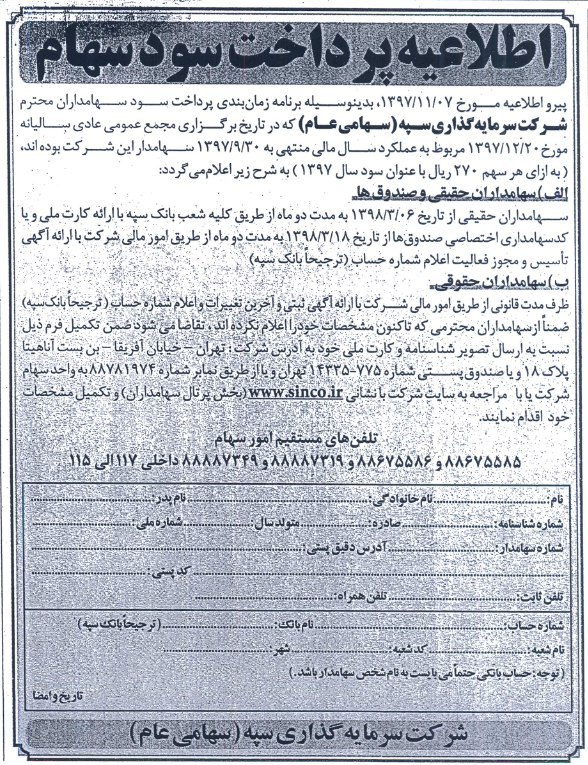 اطلاعیه پرداخت سود سهام
پیرو اطلاعیه مورخ ۱۳۹۷/۱۱/۰۷، بدینوسیله برنامه زمان‌بندی پرداخت سود سهامداران محترم
شرکت سرمایه گذاری سپه (سهامی عام) که در تاریخ برگزاری مجمع عمومی عادی سالیانه
مورخ ۱۳۹۷/۱۲/۲۰ مربوط به عملکرد سال مالی منتهی به ۱۳۹۷/۹/۳۰ سهامدار این شرکت بوده اند،
( به ازای هر سهم ۲۷۰ ریال با عنوان سود سال ۱۳۹۷ ) به شرح زیر اعلام می‌گردد:
الف) سهامداران حقیقی و صندوق ها
سهامداران حقیقی از تاریخ ۱۳۹۸/۳/۰۶ به مدت دو ماه از طریق کلیه شعب بانک سپه با ارائه کارت ملی و یا
کد سهامداری اختصاصی صندوق‌ها از تاریخ ۱۳۹۸/۳/۱۸ به مدت دو ماه از طریق امور مالی شرکت با ارائه آگهی
تأسیس و مجوز فعالیت اعلام شماره حساب (ترجیحاً بانک سپه)
ب) سهامداران حقوقی
ظرف مدت قانونی از طریق امور مالی شرکت با ارائه آگهی ثبتی و آخرین تغییرات و اعلام شماره حساب (ترجیحاً بانک سپه)
ضمناً از سهامداران محترمی که تاکنون مشخصات خود را اعلام نکرده اند، تقاضا می شود ضمن تکمیل فرم ذیل
نسبت به ارسال تصویر شناسنامه و کارت ملی خود به آدرس شرکت: تهران – خیابان آفریقا – بن بست آناهیتا
پلاک ۱۸ و یا صندوق پستی شماره ۷۷۵-۱۴۳۳۵ تهران و یا از طریق نمابر شماره ۸۸۷۸۱۹۷۴ به واحد سهام
شرکت یا با مراجعه به سایت شرکت با نشانی www.sinco.ir (بخش پرتال سهامداران) و تکمیل مشخصات
خود اقدام نمایند.
تلفن‌های مستقیم امور سهام
۸۸۶۷۵۵۸۵ و ۸۸۶۷۵۵۸۶ و ۸۸۸۸۷۳۱۹ و ۸۸۸۸۷۳۴۹ داخلی ۱۱۷ الی ۱۱۵
نام: نام خانوادگی: نام پدر:
شماره شناسنامه: صادره: متولد سال: شماره ملی:
شماره سهامدار: آدرس دقیق پستی:
کد پستی:
تلفن ثابت: تلفن همراه:
شماره حساب: نام بانک: (ترجیحاً بانک سپه)
نام شعبه: کد شعبه: شهر:
( توجه: حساب بانکی حتماً می بایست به نام شخص سهامدار باشد.)
تاریخ و امضا
شرکت سرمایه گذاری سپه (سهامی عام)